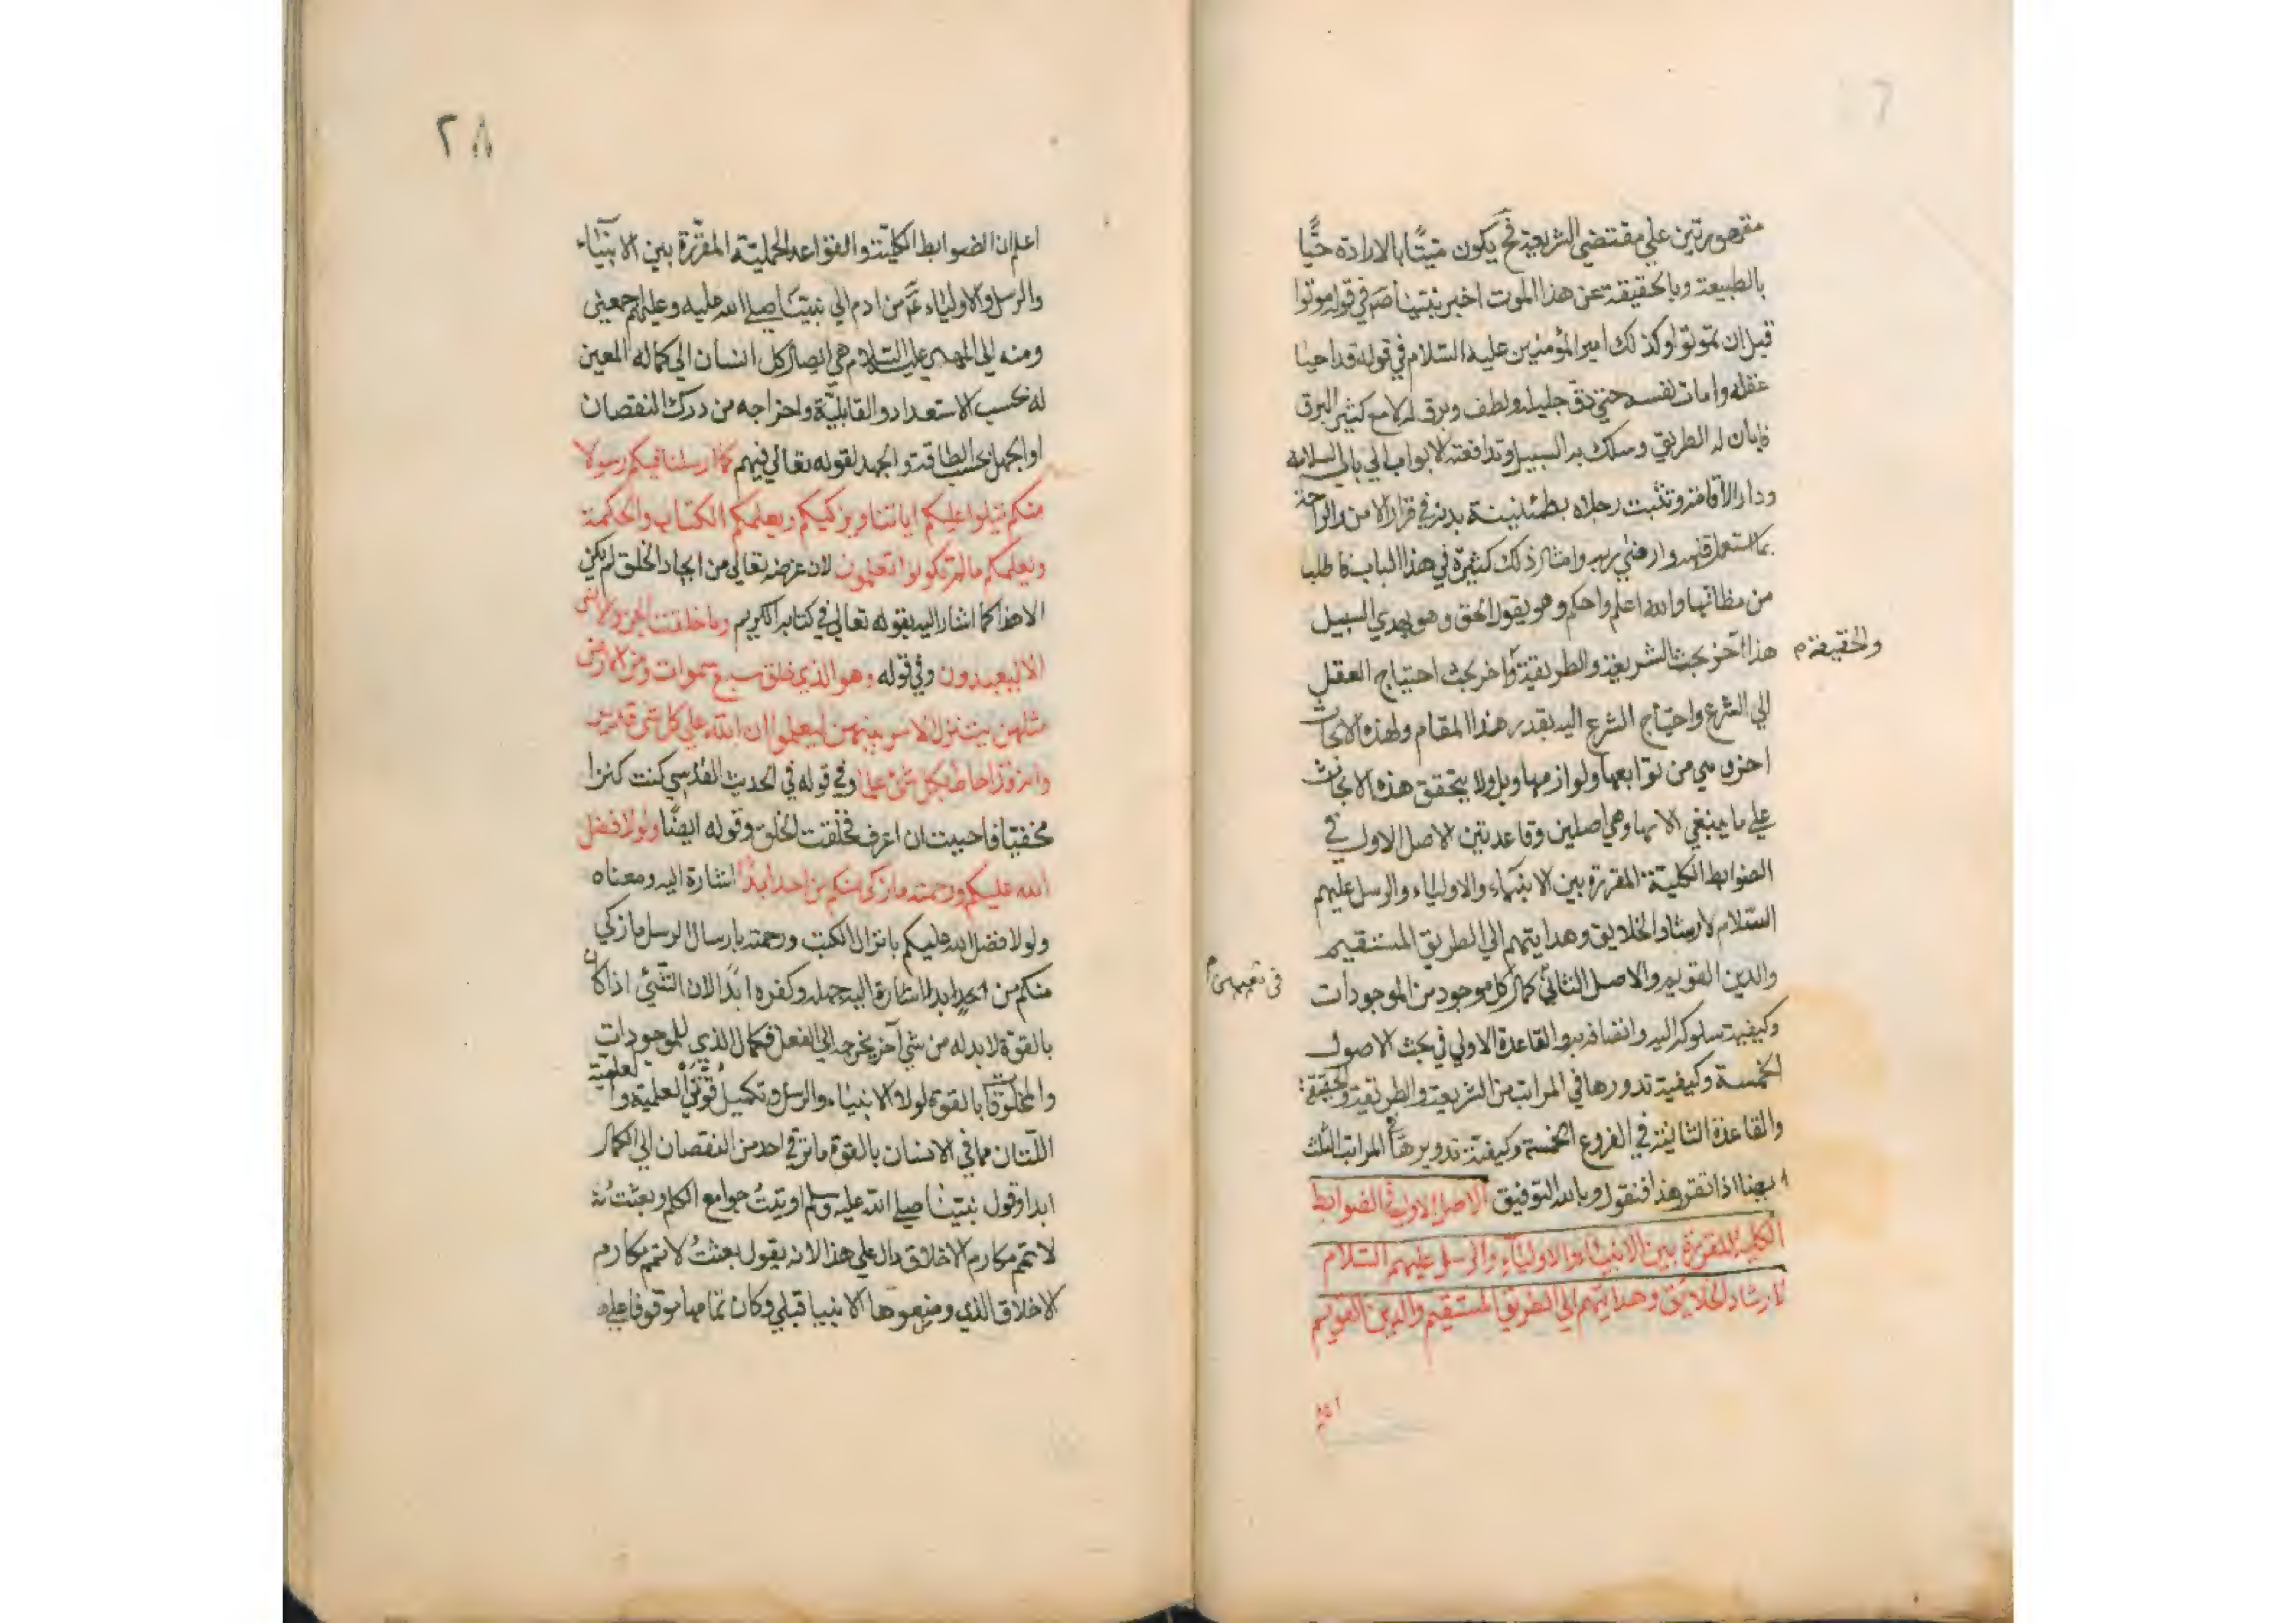 مقهورتين علي مقتضي الشريعة فح يكون ميّتًا بالارادة حيًّا
بالطبيعة وبالحقيقة عن هذا الموت اخبر نبيّنا صم في قوله موتوا
قبل ان تموتوا وكذلك امير المؤمنين عليه السلام في قوله قد احيا
عقله وامات نفسه حتي دقّ جليله ولطف وبرق له لامع كثير البرق
فابان له الطريق وسلك به السبيل وتدافعته الابواب الي باب السلامة
ودار الاقامة وتثبت رجلاه بطمئنينة بدنه في قرار الامن والراحة
بما استعمل قلبه وارضي ربه وامثال ذلك كثيرة في هذا الباب فاطلبا
من مظانها والله اعلم واحكم وهو يقول الحق وهو يهدي السبيل
هذا آخر بحث الشريعة والطريقة وآخر بحث احتياج العقل
والحقيقة م
الي الشرع واحتياج الشرع اليه بقدر هذا المقام ولهذه الابحاث
اخري هي من توابعها ولوازمها وبل ولا يتحقق هذه الابحاث
علي ما ينبغي الا بها وهي اصلين وقاعدتين الاصل الاول في
الضوابط الكلية المقررة بين الانبياء والاولياء والرسل عليهم
السّلام لارشاد الخلايق وهدايتهم الي الطريق المستقيم
والدين القويم والاصل الثاني كمال كل موجود من الموجودات
وكيفية سلوكه اليه واتصافه به والقاعدة الاولي في بحث الاصول
الخمسة وكيفية تدورها في المراتب من الشريعة والطريقة والحقيقة
والقاعدة الثانية في الفروع الخمسة وكيفية تدويرها في المراتب الثلث
ايضا اذا تقرر هذا فنقول وبالله التوفيق الاصل الاول في الضوابط
الكلية المقررة بين الانبياء والاولياء والرسل عليهم السّلام
لارشاد الخلائق وهدايتهم الي الطريق المستقيم والدين القويم
اعلم
٢٨
اعلم ان الضوابط الكليّة والقواعد الجمليّة المقرّرة بين الانبيّاء
والرسل والاولياء عم من ادم الي نبيّنا صلي الله عليه وعليهم اجمعين
ومنه الي المهدي عليه السّلام هي ايصال كل انسان الي كماله المعين
له بحسب الاستعداد والقابليّة واخراجه من درك النقصان
او الجهل بحسب الطاقة والجهد لقوله تعالي فيهم كما ارسلنا فيكم رسولا
منكم يتلوا عليكم اياتنا ويزكيكم ويعلمكم الكتاب والحكمة
ويعلمكم ما لم تكونوا تعلمون لان غرضه تعالي من ايجاد الخلق لم يكن
الا هذا كما اشار اليه بقوله تعالي في كتابه الكريم وما خلقت الجن والانس
الا ليعبدون وفي قوله وهو الذي خلق سبع سموات ومن الارض
مثلهن يتنزل الامر بينهن ليعلموا ان الله علي كل شئ قدير
وانه قد احاط بكل شئ علما وفي قوله في الحديث القدسي كنت كنزا
مخفيّا فاحببت ان اعرف فخلقت الخلق وقوله ايضًا ولولا فضل
الله عليكم ورحمته ما زكي منكم من احد ابدًا اشارة اليه ومعناه
ولولا فضل الله عليكم بانزال الكتب ورحمته بارسال الرسل ما زكي
منكم من احد ابدا اشارة اليه جهله وكفره ابدًا لان الشّئ اذا كان
بالقوة لا بد له من شئ آخر يخرجه الي الفعل فكمال الذي للموجودات
والمخلوقات بالقوة لولا الانبياء والرسل وتكميل قوّتي العلمية والعلمية
اللّتان هما في الانسان بالقوة ما ترقي احد من النقصان الي الكمال
ابدا وقول نبيّنا صلي الله عليه وسلم اوتيتُ جوامع الكلم وبعثتُ
لاتمم مكارم الاخلاق دال علي هذا لانه يقول بعثتُ لاتمم مكارم
الاخلاق الذي وضعوها الانبيا قبلي وكان تمامها موقوفا عليه